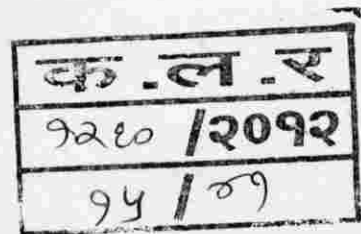 क.ल.र
१२६० /२०१२
१५ / ४१